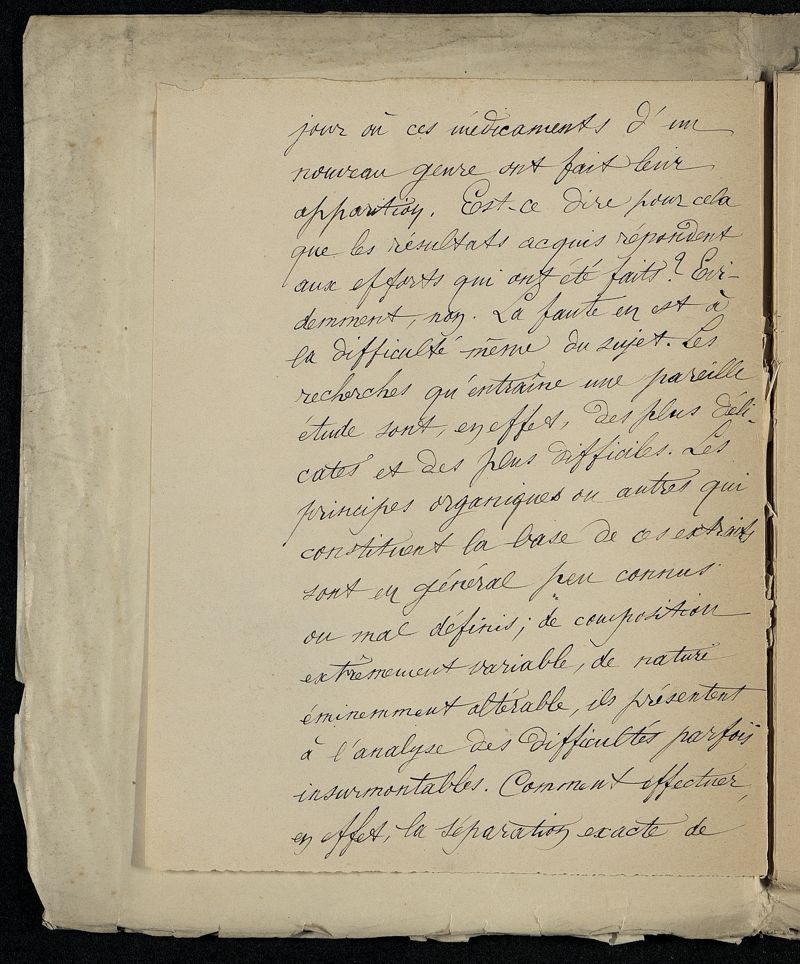 jour où ces médicaments d'un
nouveau genre ont fait leur
apparition. Est-ce dire pour cela
que les résultats acquis répondent
aux efforts qui ont été faits? Evi-
demment, non. La faute en est à
la difficulté même du sujet. Les
recherches qu'entraîne une pareille
étude sont, en effet, des plus déli-
cates et des plus difficiles. Les
principes organiques ou autres qui
constituent la base de ces extraits
sont en général peu connus
ou mal définis; de composition
extrêmement variable, de nature
éminemment altérable, ils présentent
à l'analyse des difficultés parfois
insurmontables. Comment effectuer,
en effet, la séparation exacte de